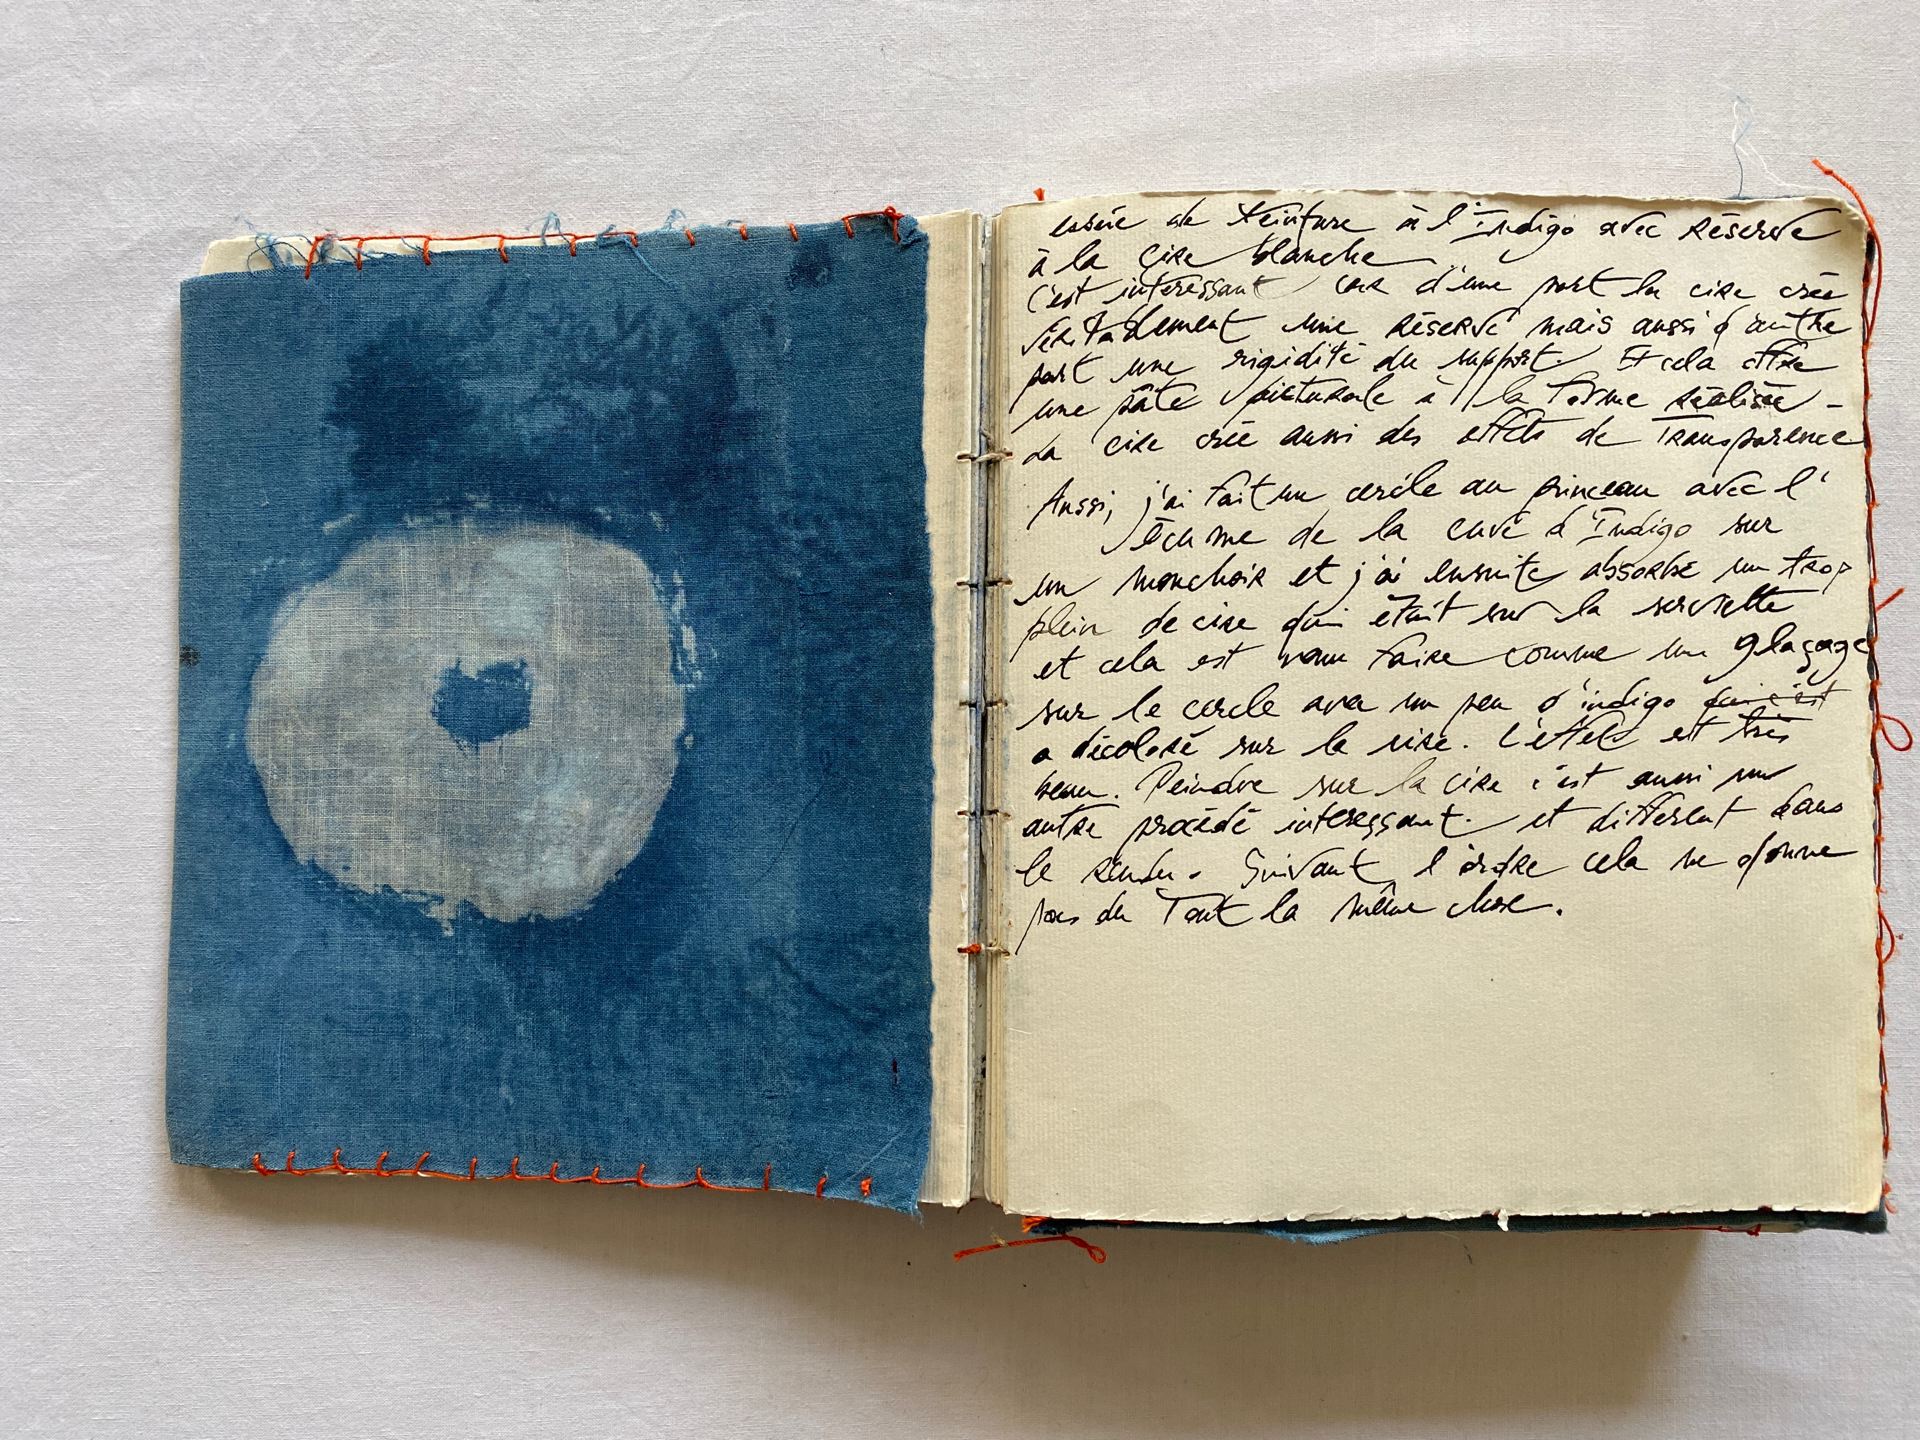 essaie de teinture à l'Indigo avec Réserve
à la cire blanche
c'est intéressant car d'une part la cire crée
véritablement une réserve mais aussi d'autre
part une rigidité du support. Et cela offre
une pâte picturale à la forme réalisée -
La cire crée aussi des effets de Transparence
Aussi, j'ai fait un cercle au pinceau avec l'
écume de la cuve d'Indigo sur
un mouchoir et j'ai ensuite absorbé un trop
plein de cire qui était sur la serviette
et cela est venu faire comme un glaçage
sur le cercle avec un peu d'indigo qui s'est
a décoloré sur la cire. L'effet est très
beau. Peindre sur la cire c'est aussi un
autre procédé intéressant. et différent dans
le rendu. Suivant l'ordre cela ne donne
pas du Tout la même chose.